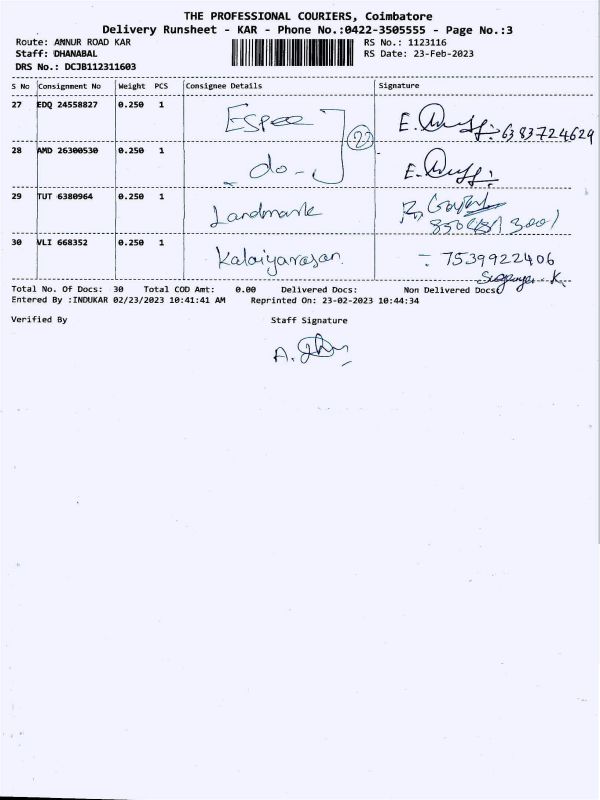 THE PROFESSIONAL COURIERS, Coimbatore
Delivery Runsheet - KAR - Phone No.:0422-3505555 - Page No.:3
Route: ANNUR ROAD KAR RS No.: 1123116
Staff: DHANABAL RS Date: 23-Feb-2023
DRS No.: DCJB112311603
S No Consignment No Weight PCS Consignee Details Signature
27 EDQ 24558827 0.250 1 Espee 22 6383724629
28 AMD 26300530 0.250 1 - do -
29 TUT 6380964 0.250 1 Landmark
30 VLI 668352 0.250 1 Kalaiyarasan. 7539922406
Total No. Of Docs: 30 Total COD Amt: 0.00 Delivered Docs: Non Delivered Docs:
Entered By :INDUKAR 02/23/2023 10:41:41 AM Reprinted On: 23-02-2023 10:44:34
Verified By Staff Signature